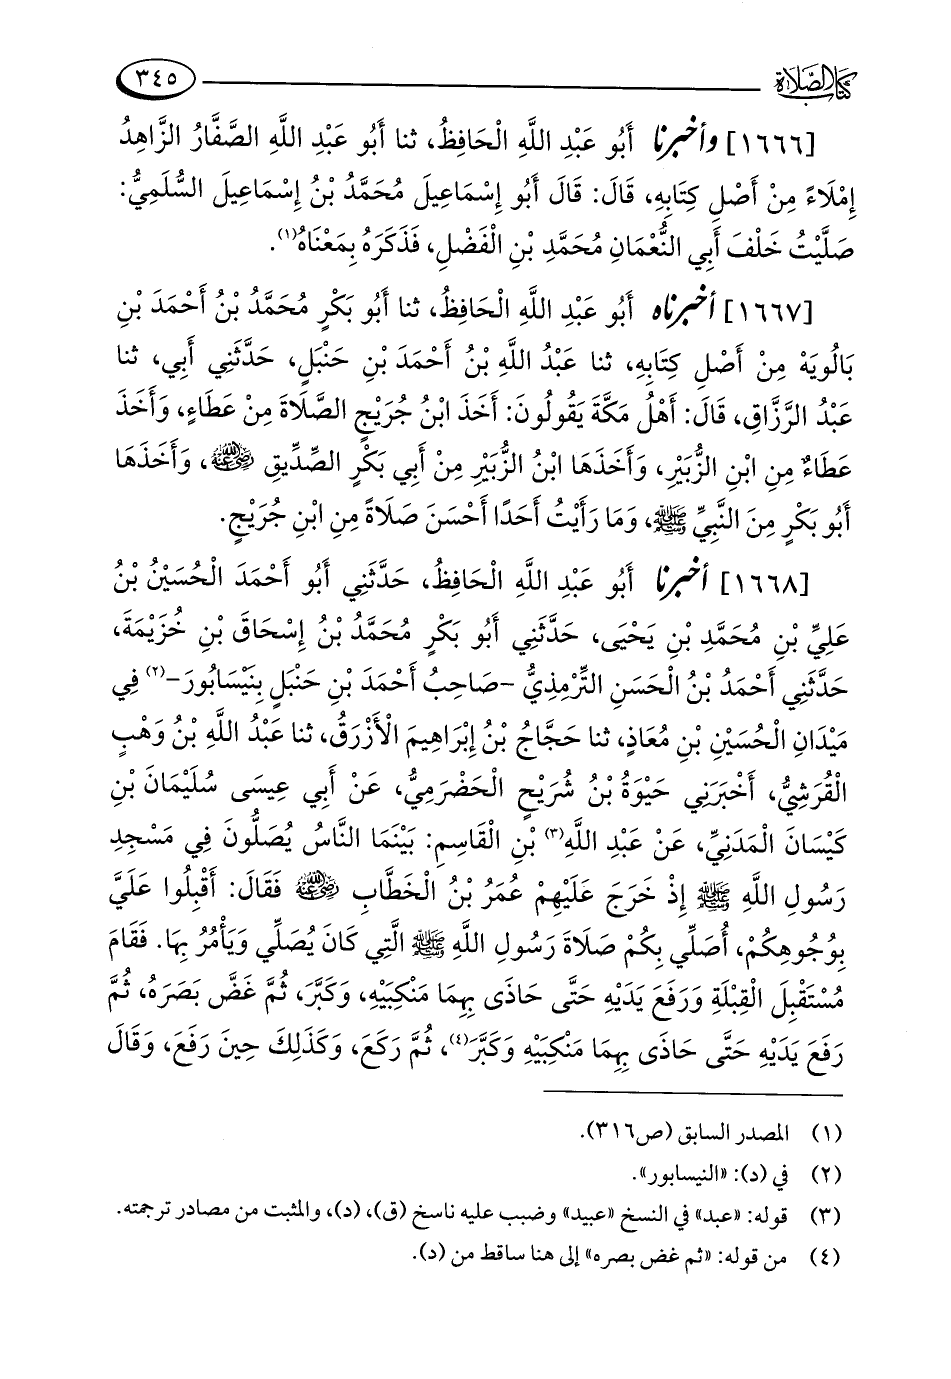 كتاب الصلاة ٣٤٥
[١٦٦٦] وأخبرنا أَبُو عَبْدِ اللَّهِ الْحَافِظُ، ثنا أَبُو عَبْدِ اللَّهِ الصَّفَّارُ الزَّاهِدُ
إِمْلَاءً مِنْ أَصْلِ كِتَابِهِ، قَالَ: قَالَ أَبُو إِسْمَاعِيلَ مُحَمَّدُ بْنُ إِسْمَاعِيلَ السُّلَمِيُّ:
صَلَّيْتُ خَلْفَ أَبِي النُّعْمَانِ مُحَمَّدِ بْنِ الْفَضْلِ، فَذَكَرَهُ بِمَعْنَاهُ(١).
[١٦٦٧] أخبرناه أَبُو عَبْدِ اللَّهِ الْحَافِظُ، ثنا أَبُو بَكْرٍ مُحَمَّدُ بْنُ أَحْمَدَ بْنِ
بَالُويَهْ مِنْ أَصْلِ كِتَابِهِ، ثنا عَبْدُ اللَّهِ بْنُ أَحْمَدَ بْنِ حَنْبَلٍ، حَدَّثَنِي أَبِي، ثنا
عَبْدُ الرَّزَّاقِ، قَالَ: أَهْلُ مَكَّةَ يَقُولُونَ: أَخَذَ ابْنُ جُرَيْجٍ الصَّلَاةَ مِنْ عَطَاءٍ، وَأَخَذَ
عَطَاءٌ مِنِ ابْنِ الزُّبَيْرِ، وَأَخَذَهَا ابْنُ الزُّبَيْرِ مِنْ أَبِي بَكْرٍ الصِّدِّيقِ رضي الله عنه، وَأَخَذَهَا
أَبُو بَكْرٍ مِنَ النَّبِيِّ ﷺ، وَمَا رَأَيْتُ أَحَدًا أَحْسَنَ صَلَاةً مِنِ ابْنِ جُرَيْجٍ.
[١٦٦٨] أخبرنا أَبُو عَبْدِ اللَّهِ الْحَافِظُ، حَدَّثَنِي أَبُو أَحْمَدَ الْحُسَيْنُ بْنُ
عَلِيِّ بْنِ مُحَمَّدِ بْنِ يَحْيَى، حَدَّثَنِي أَبُو بَكْرٍ مُحَمَّدُ بْنُ إِسْحَاقَ بْنِ خُزَيْمَةَ،
حَدَّثَنِي أَحْمَدُ بْنُ الْحَسَنِ التِّرْمِذِيُّ -صَاحِبُ أَحْمَدَ بْنِ حَنْبَلٍ بِنَيْسَابُورَ-(٢) فِي
مَيْدَانِ الْحُسَيْنِ بْنِ مُعَاذٍ، ثنا حَجَّاجُ بْنُ إِبْرَاهِيمَ الْأَزْرَقُ، ثنا عَبْدُ اللَّهِ بْنُ وَهْبٍ
الْقُرَشِيُّ، أَخْبَرَنِي حَيْوَةُ بْنُ شُرَيْحٍ الْحَضْرَمِيُّ، عَنْ أَبِي عِيسَى سُلَيْمَانَ بْنِ
كَيْسَانَ الْمَدَنِيِّ، عَنْ عَبْدِ اللَّهِ(٣) بْنِ الْقَاسِمِ: بَيْنَمَا النَّاسُ يُصَلُّونَ فِي مَسْجِدِ
رَسُولِ اللَّهِ ﷺ إِذْ خَرَجَ عَلَيْهِمْ عُمَرُ بْنُ الْخَطَّابِ رضي الله عنه فَقَالَ: أَقْبِلُوا عَلَيَّ
بِوُجُوهِكُمْ، أُصَلِّي بِكُمْ صَلَاةَ رَسُولِ اللَّهِ ﷺ الَّتِي كَانَ يُصَلِّي وَيَأْمُرُ بِهَا. فَقَامَ
مُسْتَقْبِلَ الْقِبْلَةِ وَرَفَعَ يَدَيْهِ حَتَّى حَاذَى بِهِمَا مَنْكِبَيْهِ، وَكَبَّرَ، ثُمَّ غَضَّ بَصَرَهُ، ثُمَّ
رَفَعَ يَدَيْهِ حَتَّى حَاذَى بِهِمَا مَنْكِبَيْهِ وَكَبَّرَ(٤)، ثُمَّ رَكَعَ، وَكَذَلِكَ حِينَ رَفَعَ، وَقَالَ
(١) المصدر السابق (ص٣١٦).
(٢) في (د): «النيسابور».
(٣) قوله: «عبد» في النسخ «عبيد» وضبب عليه ناسخ (ق)، (د)، والمثبت من مصادر ترجمته.
(٤) من قوله: «ثم غض بصره» إلى هنا ساقط من (د).